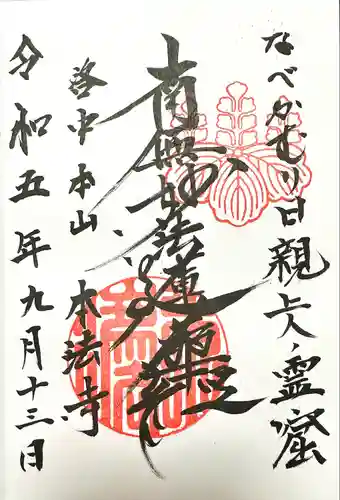 なべかむり日親上人霊窟
南無妙法蓮華経
洛中本山 本法寺
令和五年九月十三日